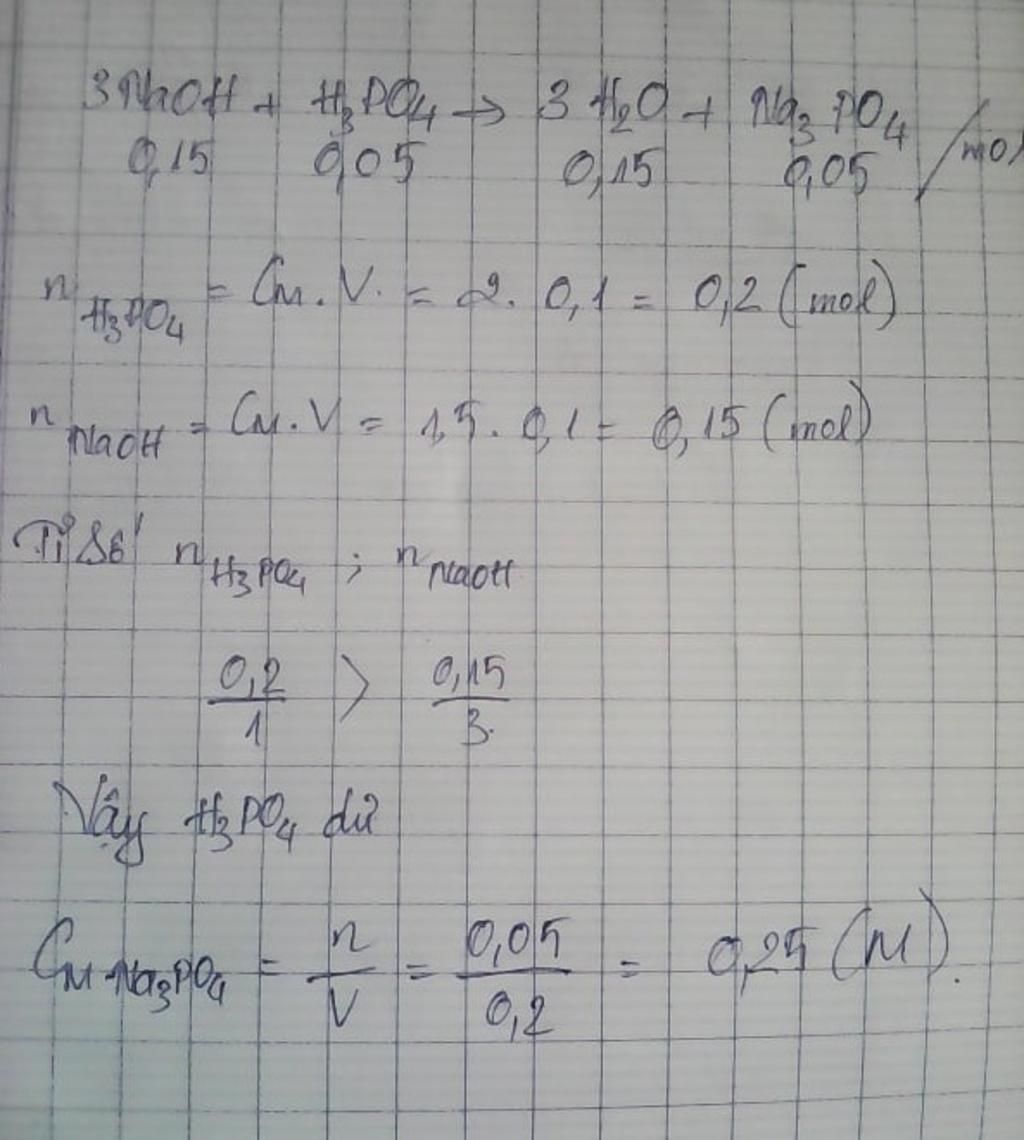 3NaOH + H₃PO₄ → 3 H₂O + Na₃PO₄
0,15 0,05 0,15 0,05 /mol
n H₃PO₄ = CM . V. = 2. 0,1 = 0,2 (mol)
n NaOH = CM . V = 1,5. 0,1 = 0,15 (mol)
Tỉ số n H₃PO₄ ; n NaOH
0,2/1 > 0,15/3.
Vậy H₃PO₄ dư
CM Na₃PO₄ = n/V = 0,05/0,2 = 0,25 (M).